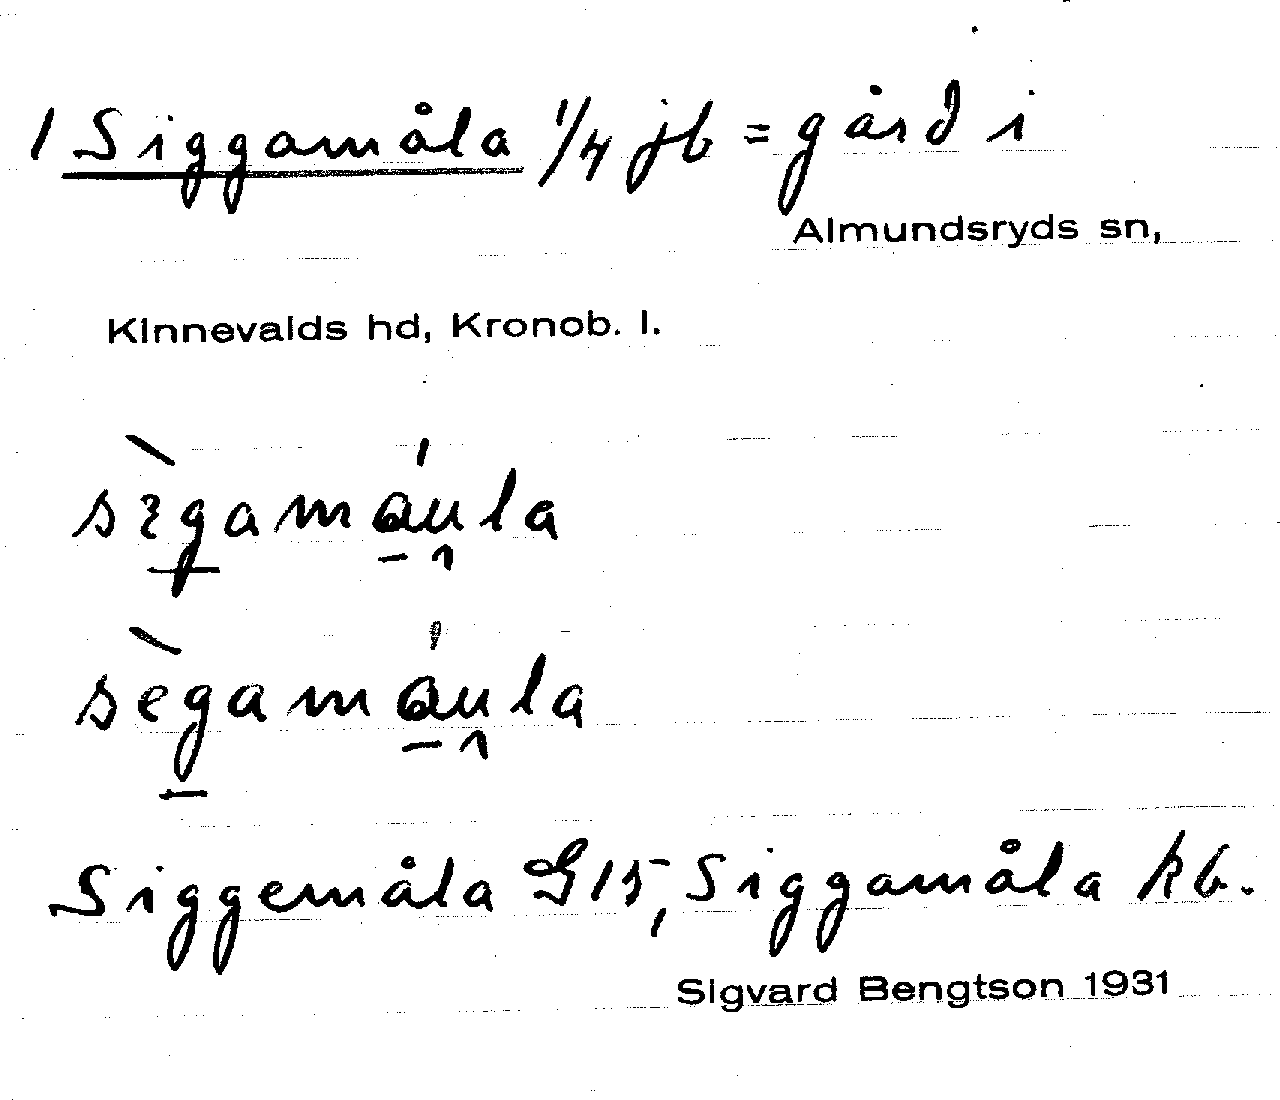 1 Siggamåla 1/4 jb = gård i
Almundsryds sn,
Kinnevalds hd, Kronob. l.
sɩ̀gamáula
sègamáula
Siggemåla G15, Siggamåla kb.
Sigvard Bengtson 1931